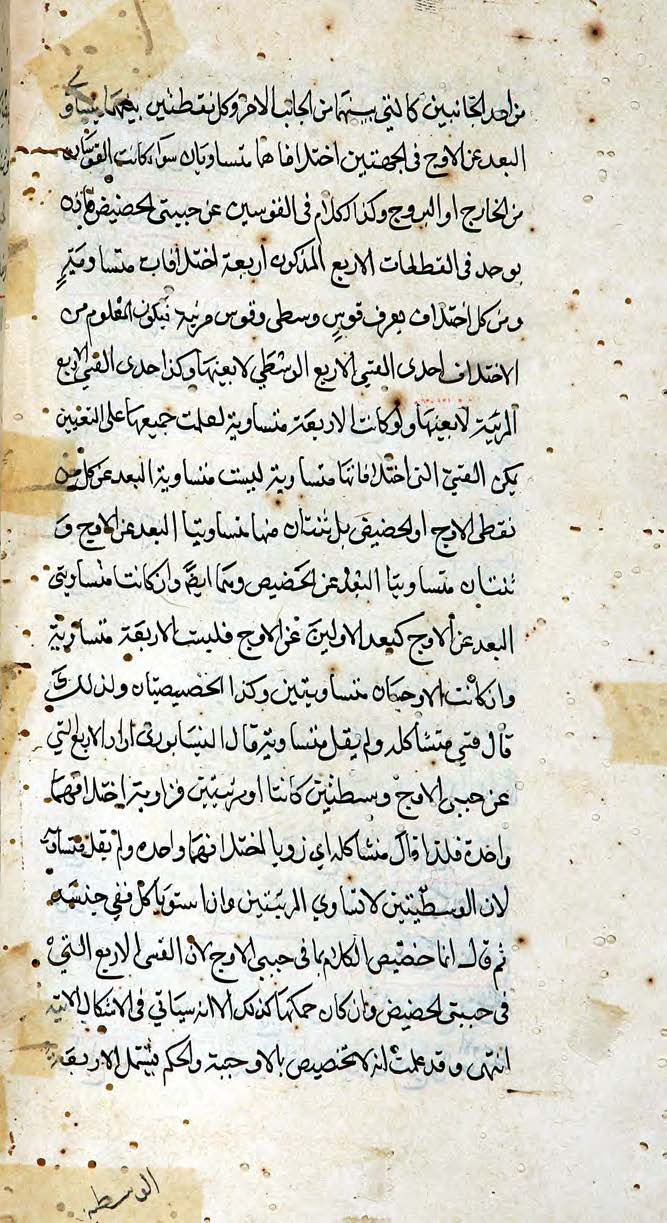 من احد الجانبين كالتي بينهما من الجانب الاخر وكل نقطتين بينهما يتساو
البعد عن الاوج في الجهتين اختلافاهما متساويان سواء كانت القوسان
من الخارج او البروج وكذا الكلام في القوسين عن جنبتي الحضيض فاذن
يوجد في القطاعات الاربع المذكورة اربعة اختلافات متساوية
ومن كل اختلاف يعرف قوس وسطى وقوس مرئية فيكون المعلوم من
الاختلاف احدى القسي الاربع الوسطى لا بعينها وكذا احدى القسي الاربع
المرئية لا بعينها ولو كانت الاربعة متساوية لعلمت جميعها على التعيين
لكن القسي التي اختلافاتها متساوية ليست متساوية البعد عن كل من
نقطتي الاوج او الحضيض بل ثنتان منها متساويتا البعد عن الاوج و
ثنتان متساويتا البعد عن الحضيض وهما ايضا وان كانتا متساويتي
البعد عن الاوج كبعد الاولين عن الاوج فليست الاربعة متساوية
وان كانت الاوجيتان متساويتين وكذا الحضيضيتان ولذلك
قال قسي متشاكلة ولم يقل متساوية قال النيسابوري اراد الاربع التي
عن جنبتي الاوج وسطتين كانتا او مرئيتين فزاوية اختلافهما
واحدة فلذا قال متشاكله اي زوايا اختلافهما واحده ولم يقل متساوية
لان الوسطيتين لا تساوي المرئيتين وان استويا كل ففي جنسه
ثم قال انما خصيص الكلام بما في جنبتي الاوج لان القسي الاربع التي
في جنبتي الحضيض وان كان حكمها كذلك الا انه سياتي في الاشكال الاتية
انتهى وقد علمت انه لا تخصيص بالاوجية والحكم يشمل الاربعة
الوسطية